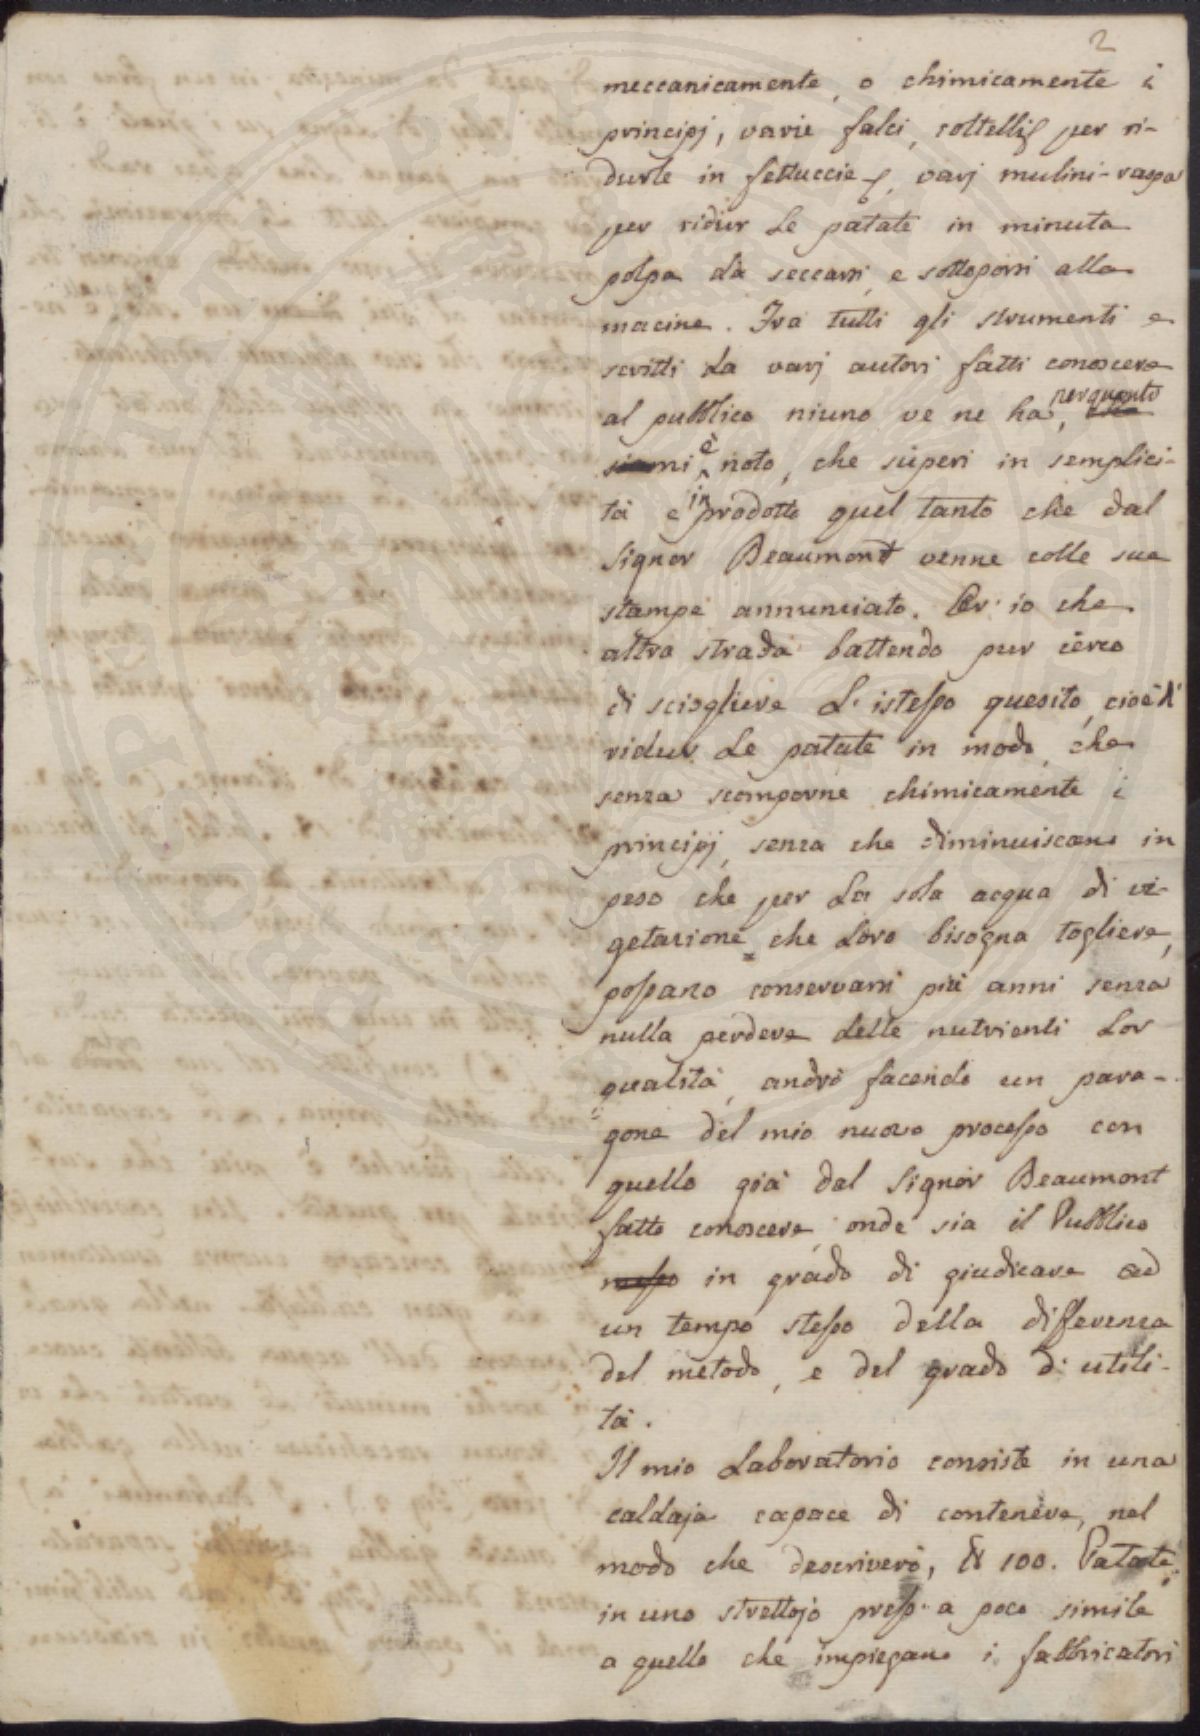 2
meccanicamente, o chimicamente i
principj, varie falci, coltelli per ri-
durle in fettuccie, varj mulini-raspa
per ridur le patate in minuta
polpa da seccarsi, e sottoporsi alla
macine. Fra tutti gli strumenti e
scritti da varj autori fatti conoscere
al pubblico niuno ve ne ha, perquanto
mi è noto, che superi in semplici-
tà e in prodotto quel tanto che dal
Signor Beaumont venne colle sue
stampe annunciato. Or io che
altra strada battendo pur cerco
di sciogliere l'istesso quesito, cioè di
ridur le patate in modo, che
senza scomporne chimicamente i
principj, senza che diminuiscano in
peso che per la sola acqua di ve-
getazione che loro bisogna togliere,
possano conservarsi più anni senza
nulla perdere delle nutrienti lor
qualità, andrò facendo un para-
gone del mio nuovo processo con
quello già dal Signor Beaumont
fatto conoscere, onde sia il Pubblico
messo in grado di giudicare ad
un tempo stesso della differenza
del metodo, e del grado di utili-
tà.
Il mio Laboratorio consiste in una
caldaja capace di contenere, nel
modo che descriverò, 100. Patate,
in uno strettojo press. a poco simile
a quello che impiegano i fabbricatori